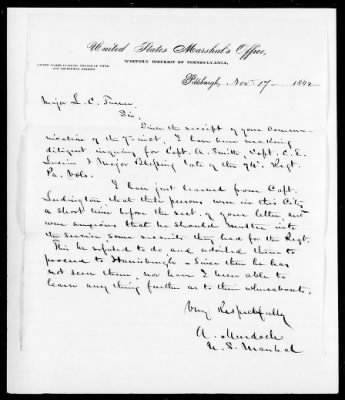 United States Marshal's Office,
WESTERN DISTRICT OF PENNSYLVANIA,
Pittsburgh, Nov. 17 1862
Major L. C. Turner,
Sir,
Since the receipt of your commu-
nication of the 7" inst, I have been making
diligent inquiry for Capt. A. Smith, Capt. C. E.
& Major Blessing late of the 74" Regt.
Pa. Vols.
I have just learned from Capt.
Ludington that these persons were in this City
a short time before the rect. of your letter, and
were anxious that he should muster into
the service some recruits they had for the Regt.
This he refused to do and advised them to
proceed to Harrisburgh - Since then he has
not seen them, nor have I been able to
learn any thing further as to their whereabouts.
Very Respectfully
A. Murdock
U. S. Marshal